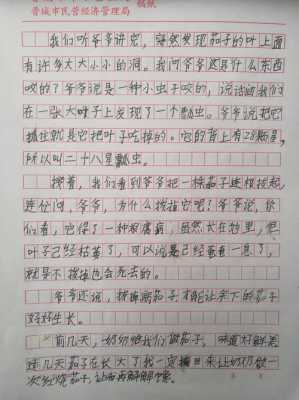 晋城市民营经济管理局 稿纸
我们听爷爷讲完,突然发现茄子的叶上面
有许多大大小小的洞。我问爷爷这是什么东西
咬的?爷爷说是一种小虫子咬的,说话间我们
在一张大叶子上发现了一个瓢虫。爷爷说把它
抓住就是它把叶子吃掉的。它的背上有28颗星,
所以叫二十八星瓢虫。
接着,我们看到爷爷把一棵茄子连根拔起,
连份问,爷爷,为什么拔掉它呢?爷爷说,你
们看,它得了一种根腐病,虽然长在地里,但
叶子已经枯黄了,可以说是已经奄奄一息了,
就是不拔掉也会死去的。
爷爷还说,拔掉病茄子才能让余下的茄子
好好生长。
前几天,奶奶给我们做茄子,味道好鲜美
过几天茄子在长大了我一定摘回来让奶奶做一
次红烧茄子,让我再解解馋。